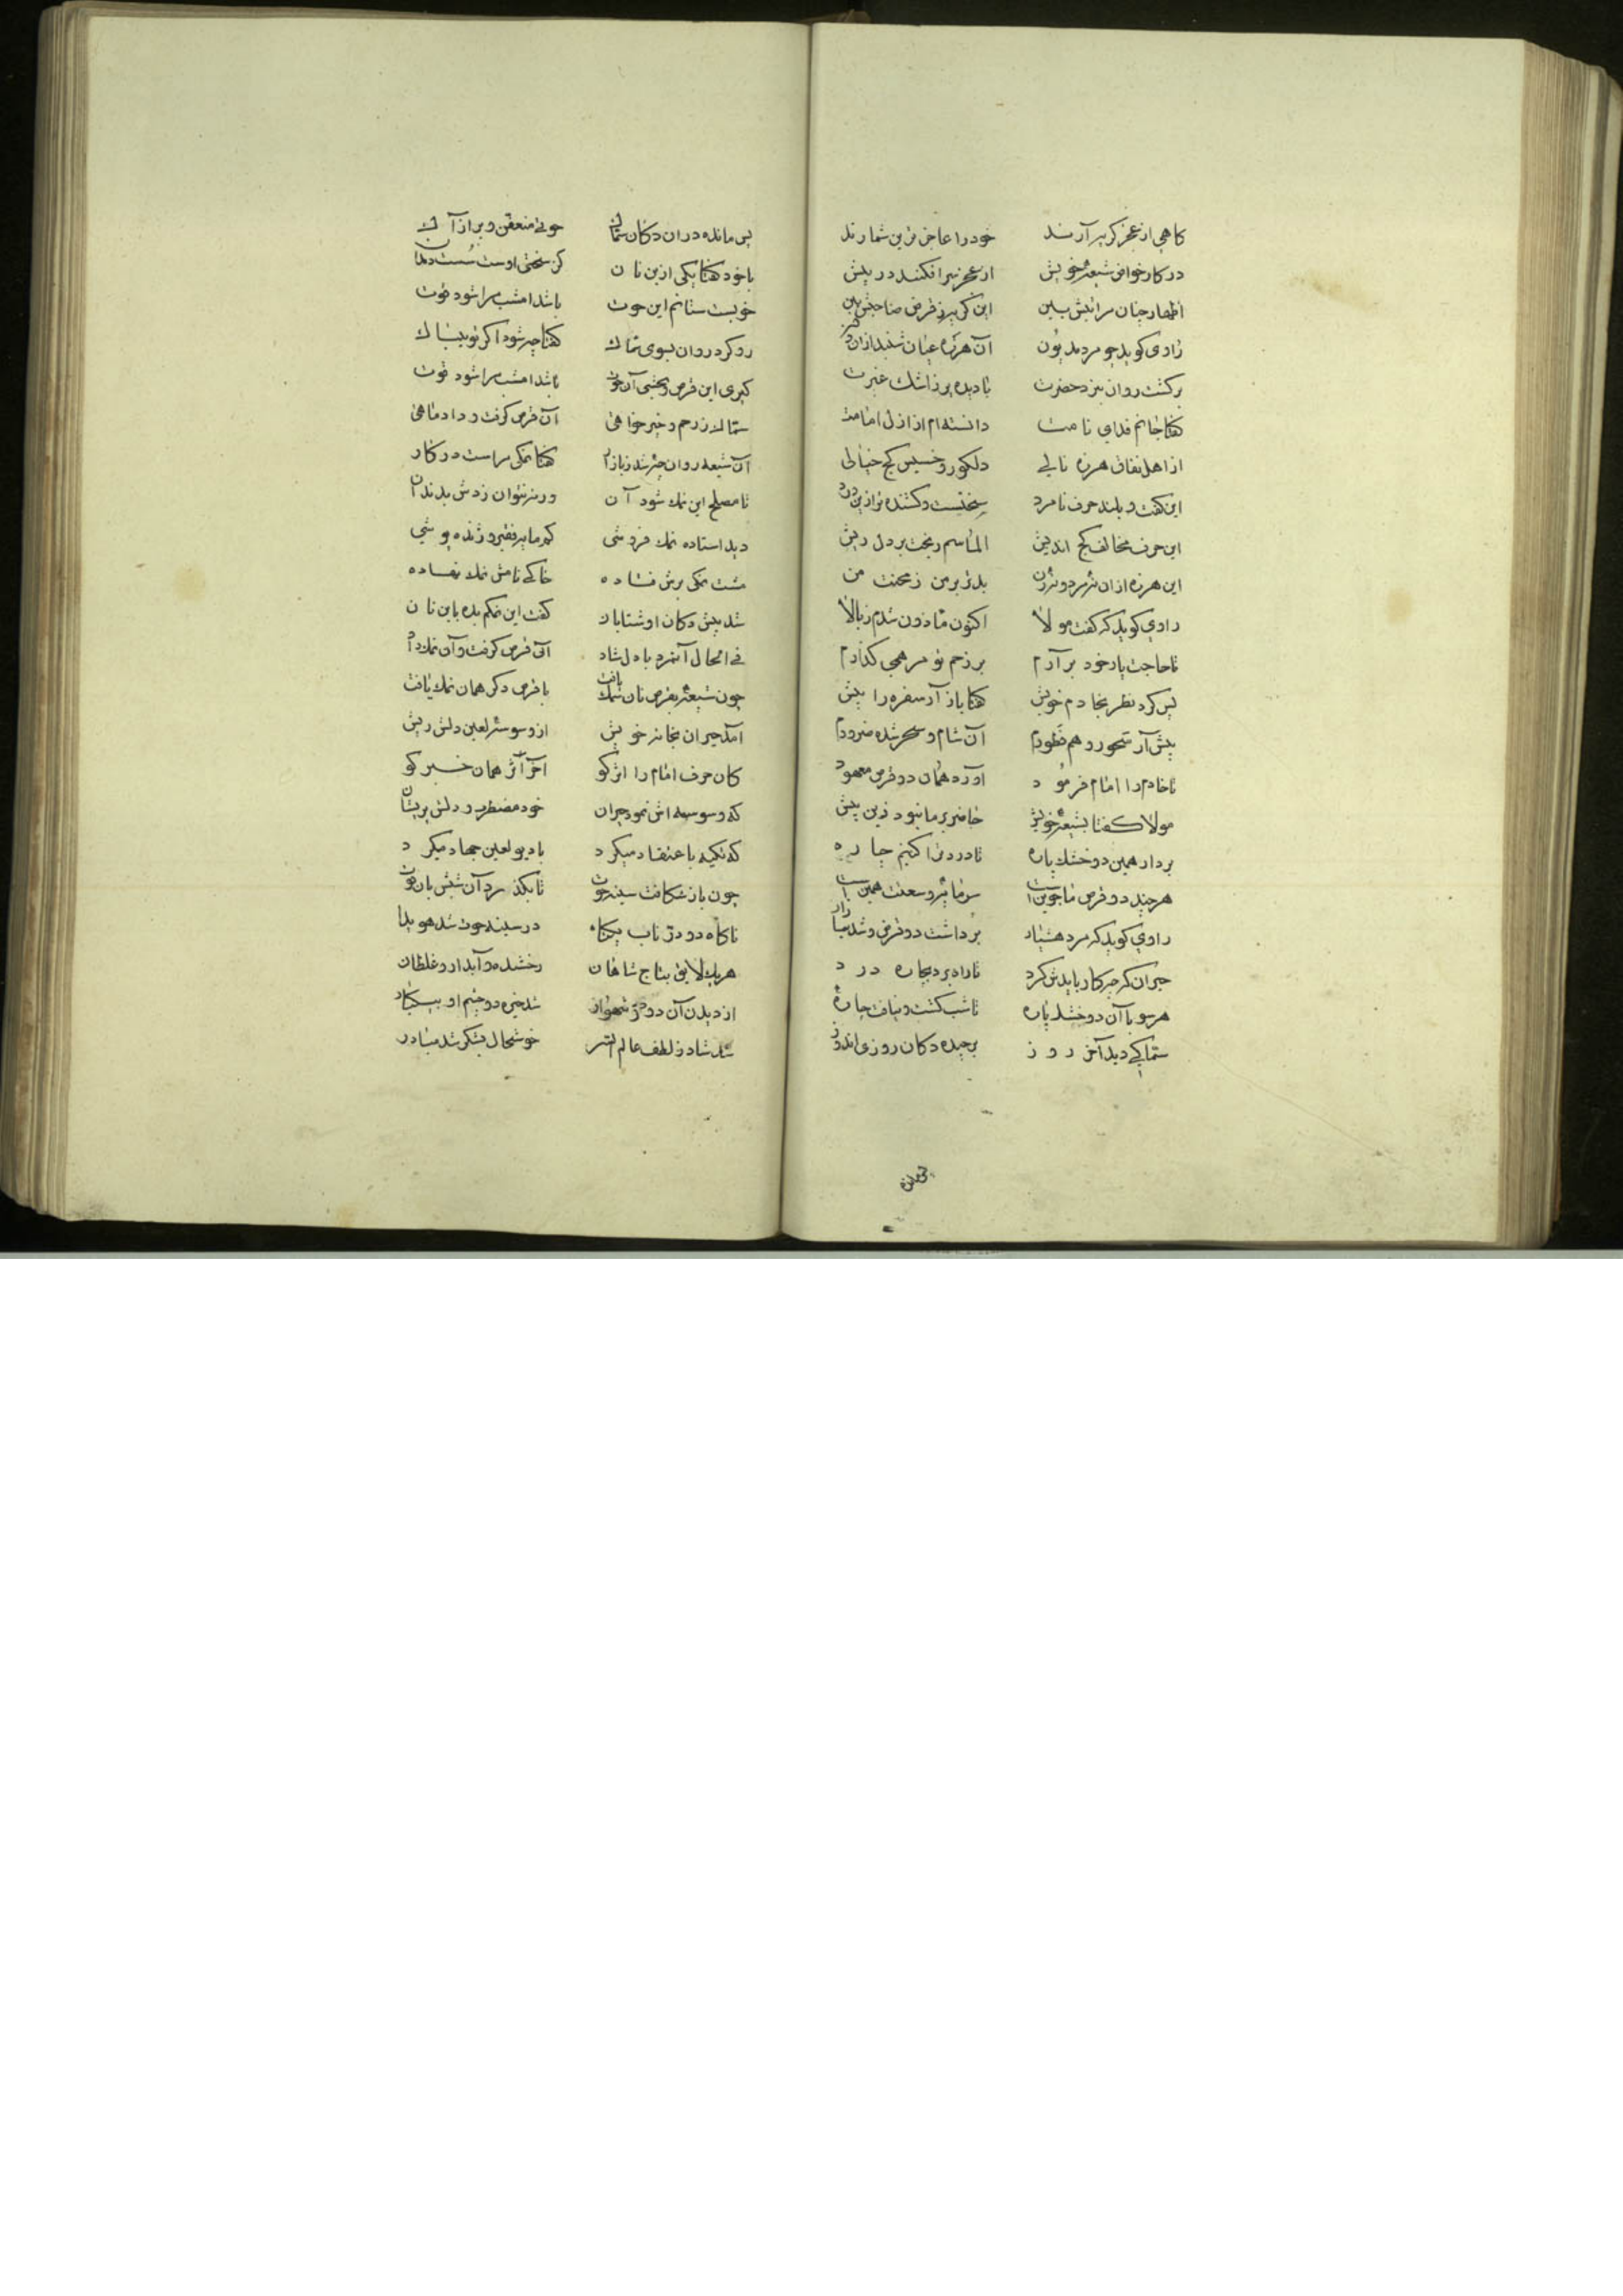 کاهی از عجز کریه آرند خود را عاجزترین شمارند
در کار خواص شیعهٔ خویش از عجز سر افکند در پیش
اظهار چنان مراتبش بین این کریه ز قرض صاحبش بین
راوی کوید چو مرد مدیون آن هرزه عیان شنید از آن
برکشت روان بنزد حضرت با دیده پر ز اشک غیرت
کفتا جانم فدای نامت دانسته‌ام از ازل امامت
از اهل نفاق هرزه نالی دلکور و خسیس کج خیالی
این کفت و بلند حرف نامرد سختست و کشنده‌تر ازین درد
این حرف مخالف کج اندیش الماسم ریخت بر دل ریش
این هرزه از آن نه مرد و نه زن بدتر بر من ز محنت من
راوی کوید که کفت مولا اکنون مأذون شدم ز بالا
تا حاجت یار خود برآرم بر زخم تو مرهمی کذارم
پس کرد نظر بخادم خویش کفتا باز آر سفره را پیش
پیش آر سحور و هم فطورم آن شام و سحر شده ضرورم
تا خادم را امام فرمود آورد همان دو قرص معهود
مولا کفتا بشیعهٔ خویش حاضر بر ما نبود زین پیش
بردار همین دو خشک پاره تا درد ترا کنیم چاره
هرچند دو قرص ما جوین است سرمایهٔ وسعتت همین است
راوی کوید که مرد هشیار برداشت دو قرص و شد ببازار
حیران که چه کار بایدش کرد تا راه برد بچاره درد
هر سو با آن دو خشک پاره تا شب کشت و نیافت چاره
سماکی دید آخر روز برچیده دکان روزی اندوز
پس مانده
پس مانده در آن دکان سماک حوتی متعفن و پر از آک
با خود کفتا یکی ازین نان کز سختی اوست سست دندان
خوبست ستانم این حوت باشد امشب مرا شود قوت
رو کرد روان بسوی سماک کفتا چه شود اکر تو بیباک
کیری این قرص و بخشی آن حوت باشد امشب مرا شود قوت
سماک ز رحم و خیر خواهی آن قرص کرفت و داد ماهی
آن شیعه روان چو شد ز بازار کفتا نمکی مراست در کار
تا مصلح این نمک شود آن ورنه نتوان زدش بدندان
دید استاده نمک فروشی کم مایه فقیر و ژنده پوشی
مشت نمکی برش فتاده خاکی نامش نمک نهاده
شد پیش دکان او شتابان کفت این نمکم بده باین نان
فی الحال آنمرد با دل شاد آن قرص کرفت و آن نمک داد
چون شیعه بقرص نان نمک یافت با قرص دکر همان نمک یافت
آمد حیران بخانهٔ خویش از وسوسهٔ لعین دلش ریش
کان حرف امام را اثر کو آخر اثر همان خبر کو
که وسوسه‌اش نمود حیران خود مضطرب و دلش پریشان
که تکیه باعتقاد میکرد با دیو لعین جهاد میکرد
چون باز شکافت سینه حوت تا بکذرد آن شبش بآن قوت
ناکاه دو در ناب یکتا در سینه حوت شد هویدا
هر یک لایق بتاج شاهان رخشنده و آبدار و غلطان
از دیدن آن دو در شهوار شد خیره دو چشم او بیکبار
شد شاد ز لطف عالم السر خوشحال بشکر شد مبادر